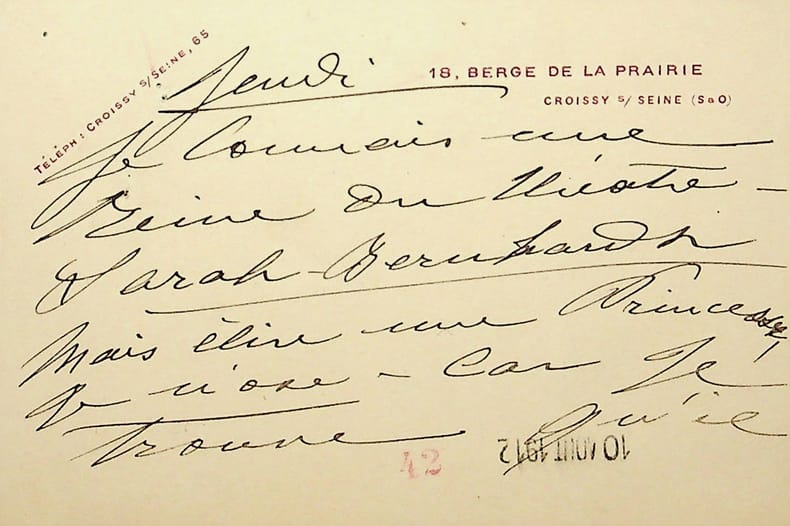 TÉLÉPH : CROISSY S/SEINE, 65
18, BERGE DE LA PRAIRIE
CROISSY S/ SEINE (S&O)
Jeudi
Je connais une
Reine du théatre -
Sarah-Bernhardt
Mais élire une Princesse,
Je n'ose - Car Je
trouve qu'il
42
10 AOUT 1912